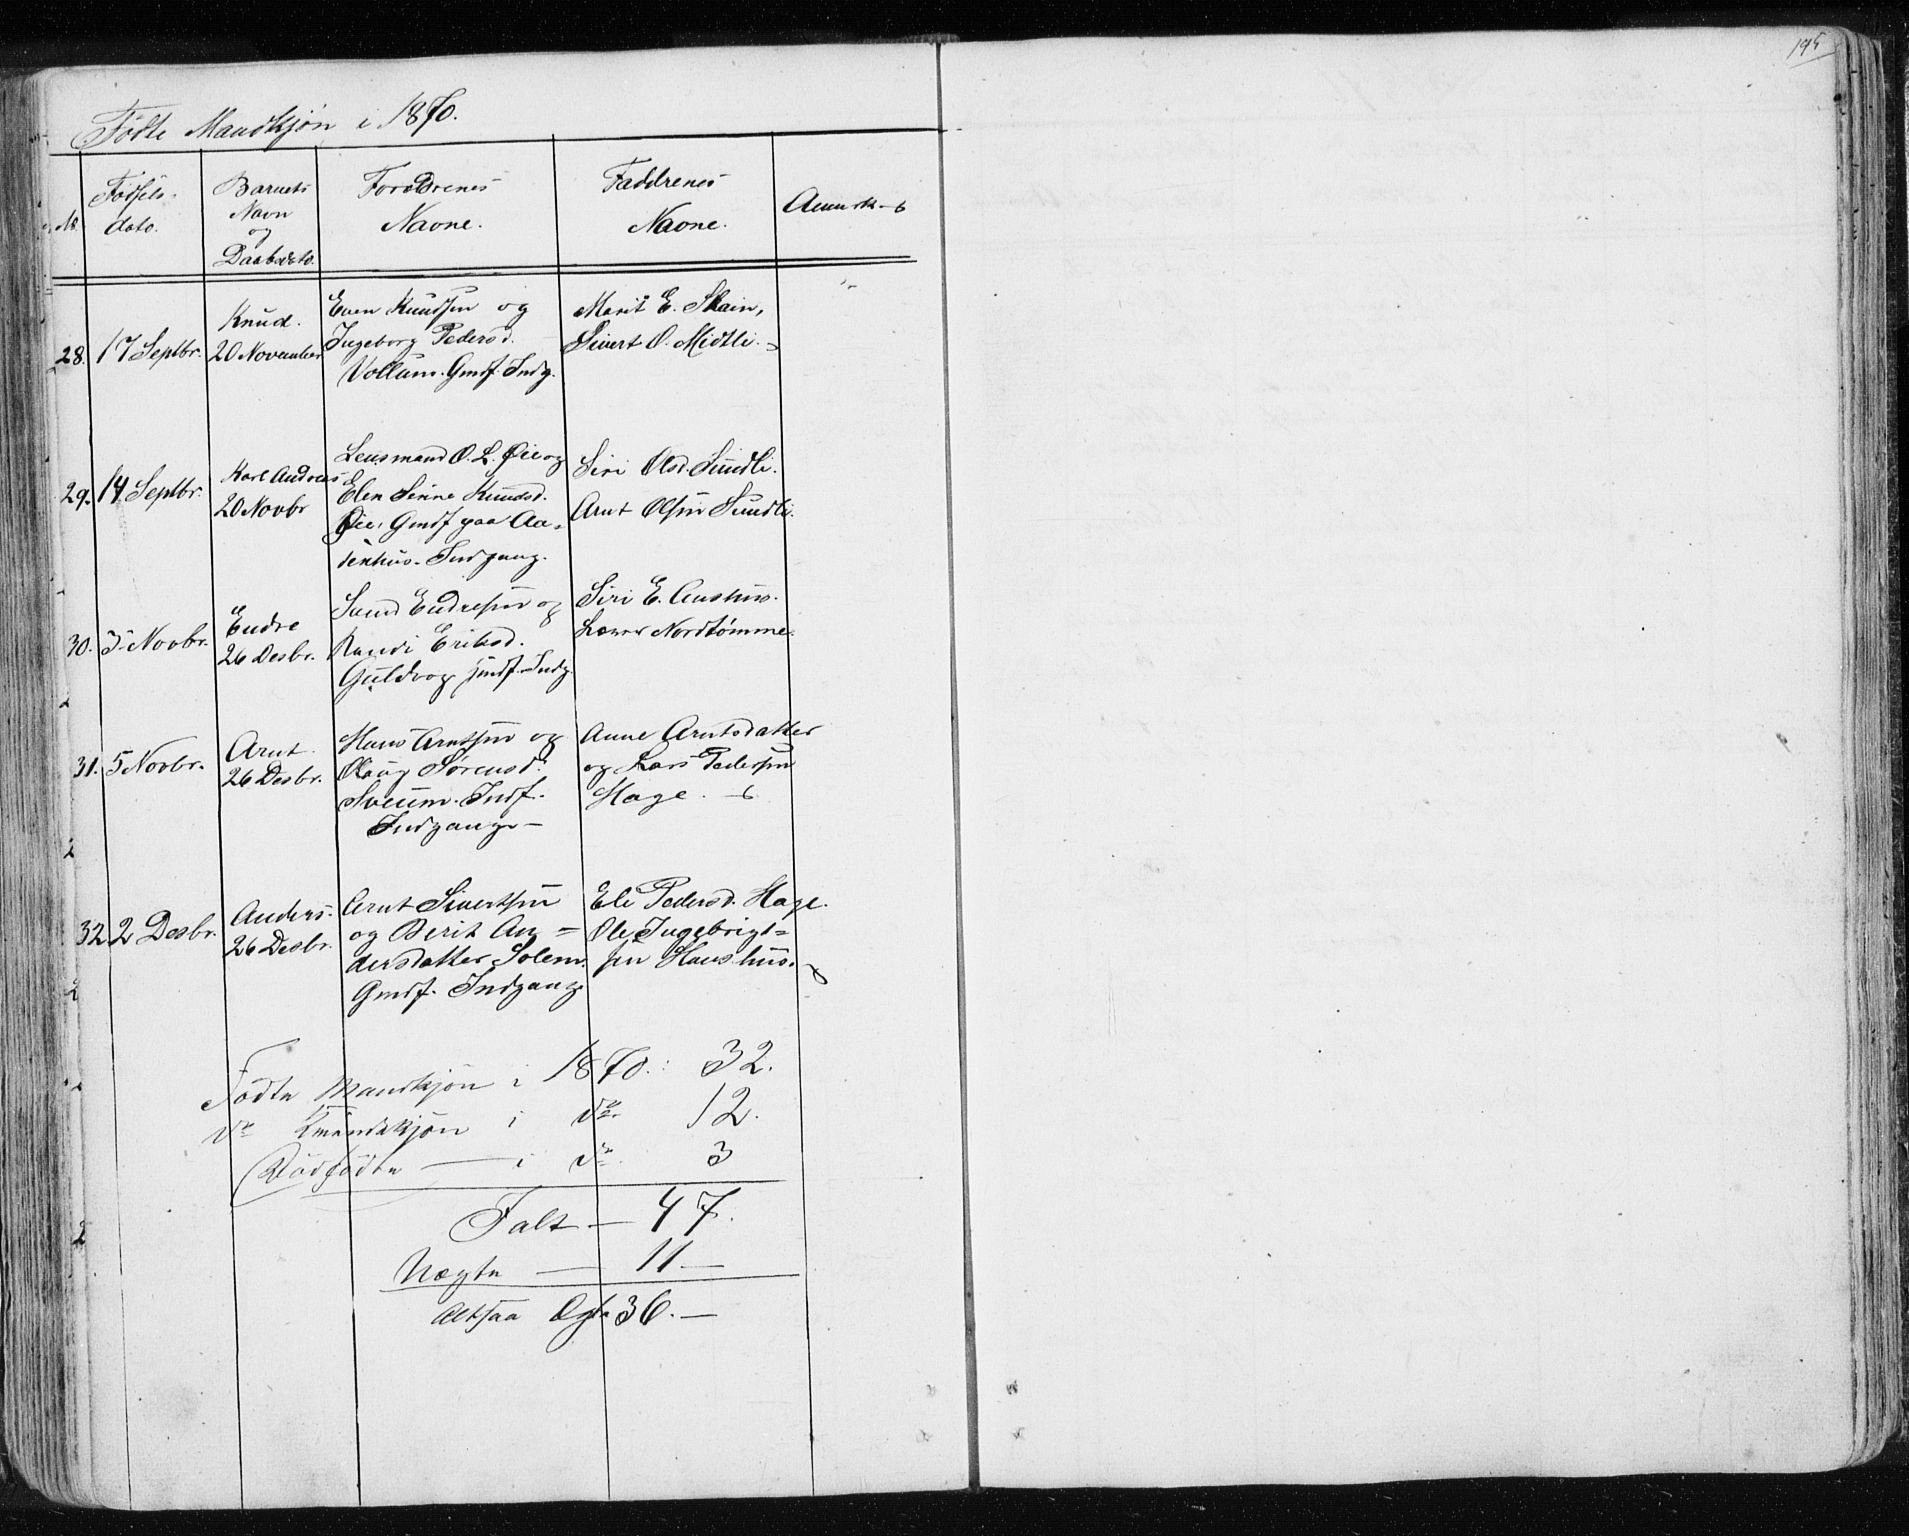 195
Fødte Mandkjøn i 1870.
No.
Fødsels-
dato.
Barnets
Navn
og
Daabsdato.
Forældrenes
Navne.
Faddrenes
Navne.
Anmærk.
28.
17 Septbr.
Knud.
20 November
Even Knudsen og
Ingeborg Pedersd.
Vollum. Gmdf. Indg.
Marit E. Skain,
Sivert O. Midtli.
29.
14 Septbr.
Karl Andreas
20 Novbr
Lensmand O. L. Øie og
Elen Sinne Knudsd.
Øie. Gmdf paa Aa-
senhus. Indgang.
Siri Olsd. Sundli.
Arnt Olsen Sundli.
30.
3 Novbr.
Endre
26 Desbr.
Svend Endresen og
Randi Eriksd.
Guldvog Gmdf. Indg.
Siri E. Aushus.
Nordtømme.
31.
5 Novbr.
Arnt.
26 Desbr.
Hans Arntsen og
Olaug Sørensd.
Sveum. Indf.
Indgang —
Anne Arntsdatter
og Lars Pedersen
Hage. —
32
2 Desbr.
Anders.
26 Desbr.
Arnt Sivertsen
og Berit An=
dersdatter Solem.
Gmdf. Indgang
Eli Pedersd. Hage.
Ole Ingebrigt=
sen Haushus.
Fødte Mandkjøn i 1870.: 32.
Do Kvindekjøn i Do. 12.
Dødfødte — i Do. 3
Talt — 47.
Uægte — 11 —
altsaa Ægte 36. —